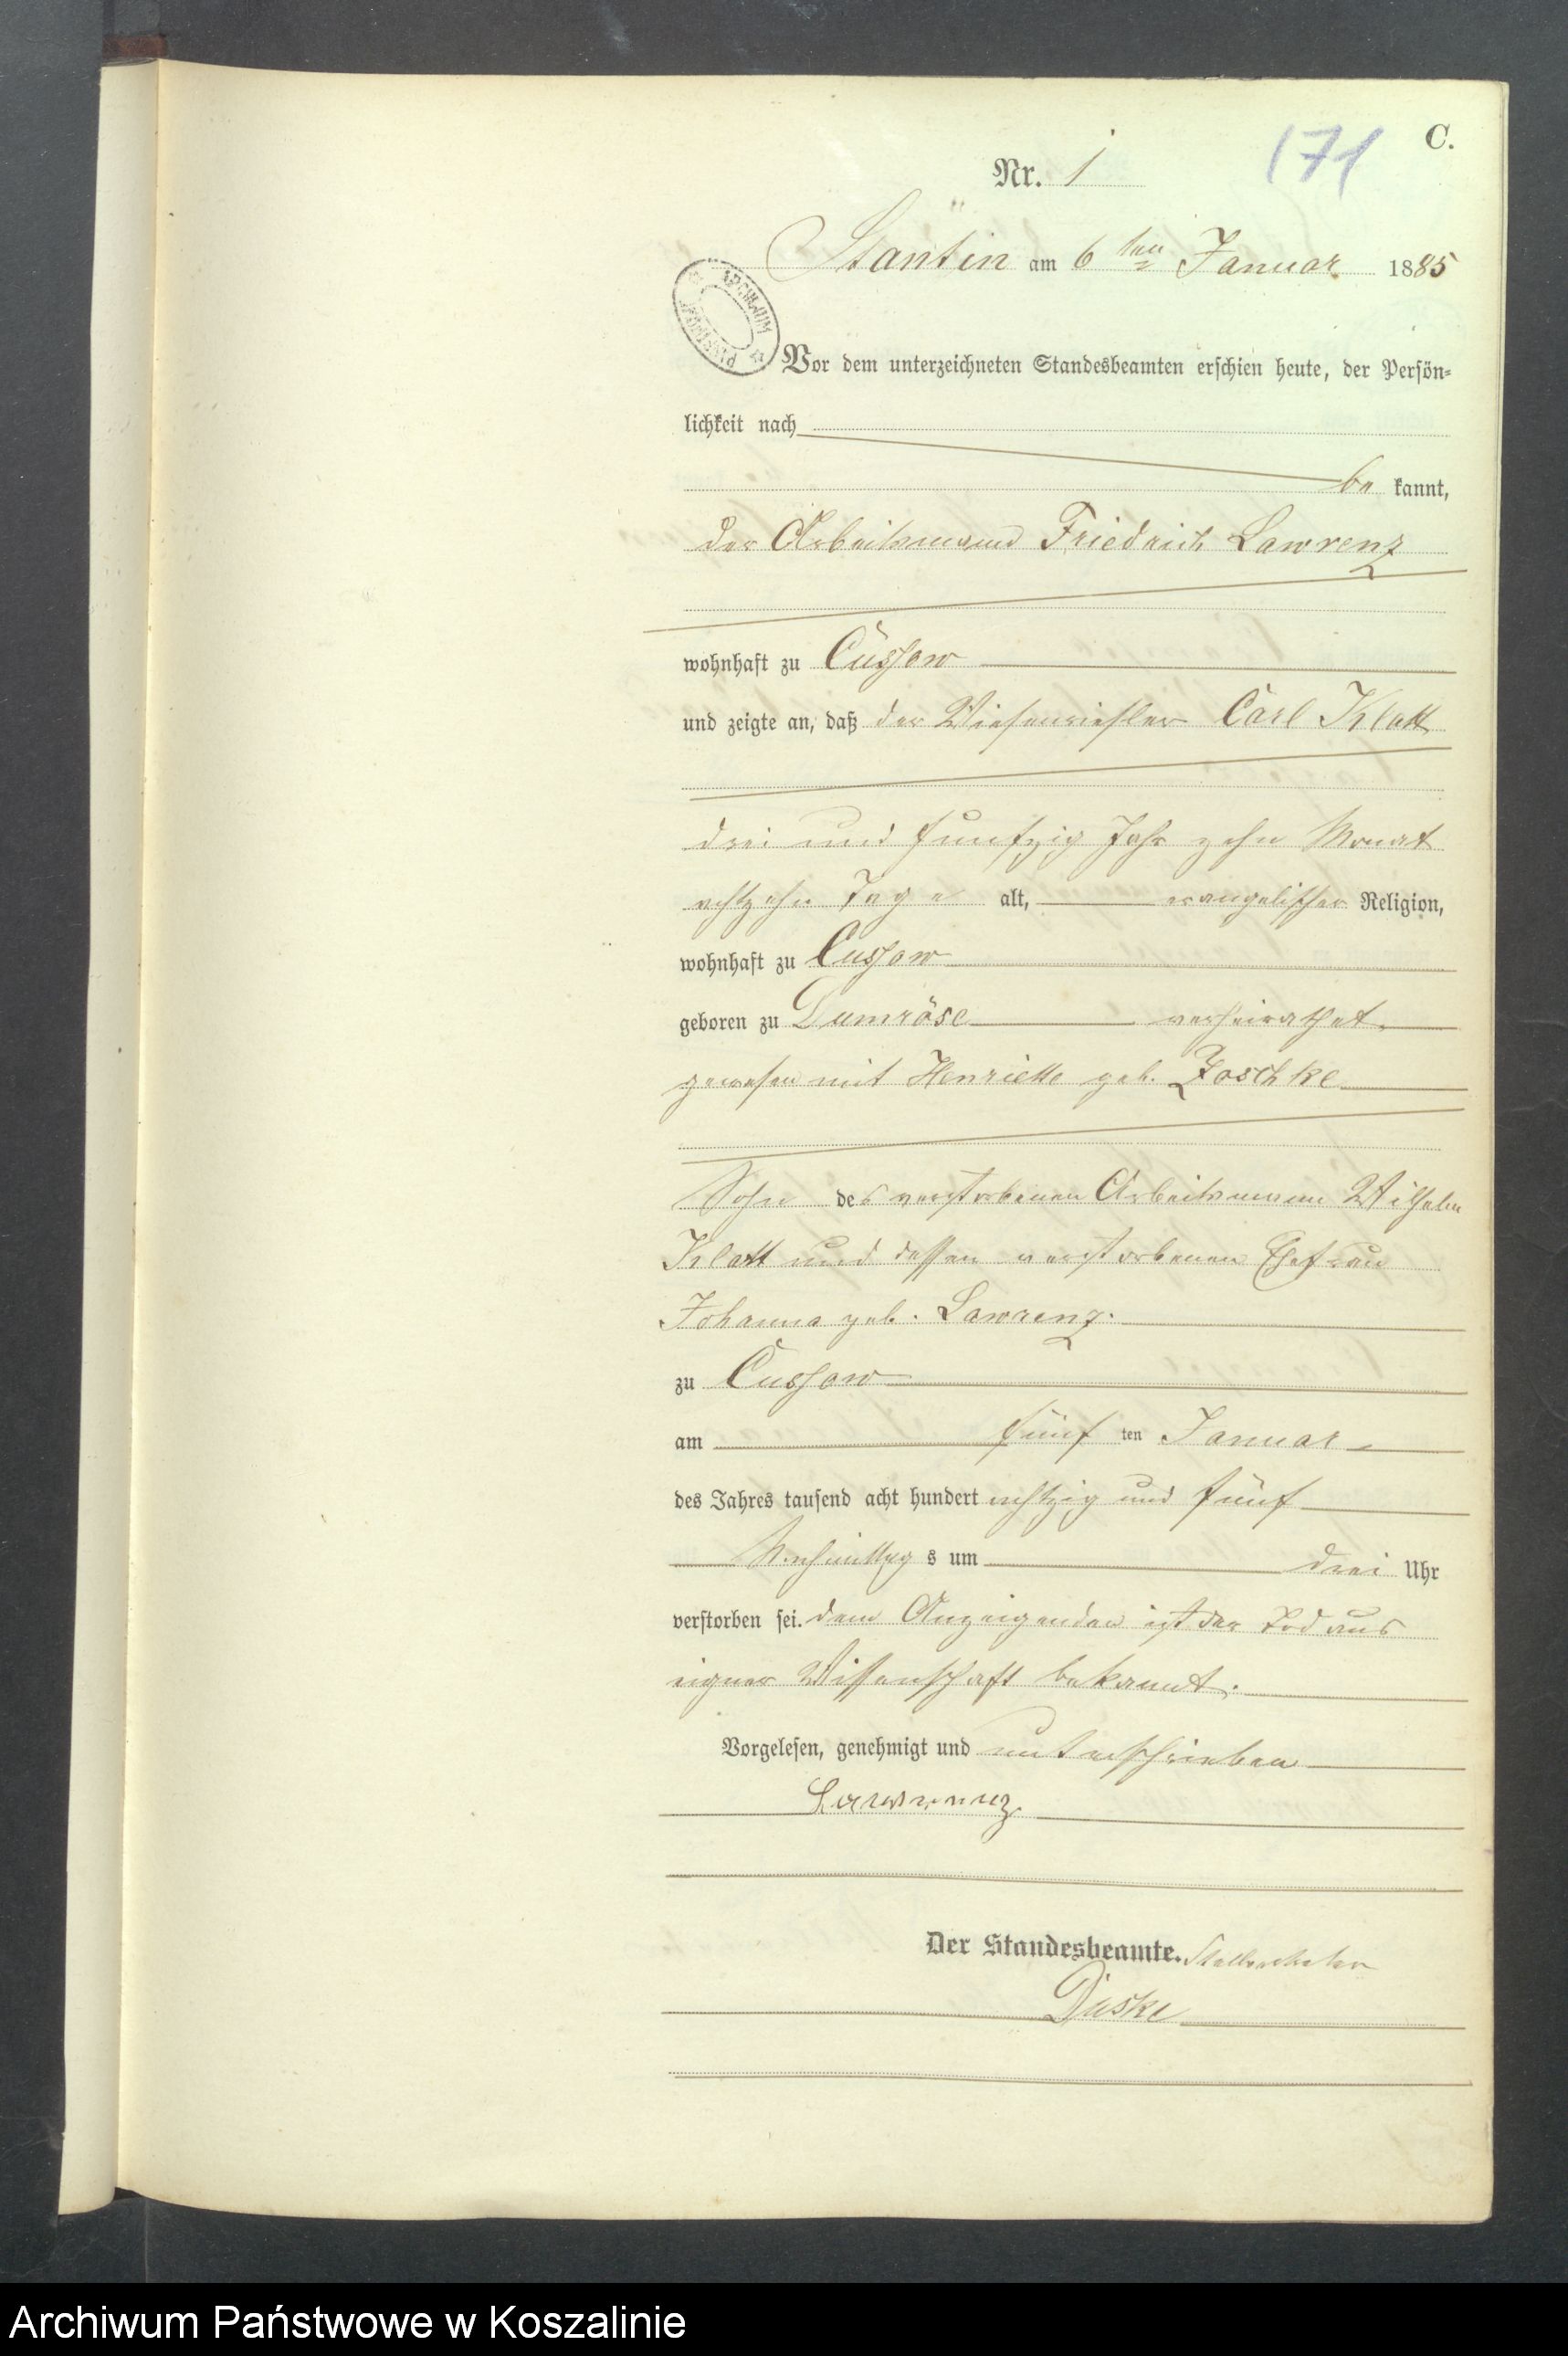 C.
171
Nr. 1
Stantin am 6 ten Januar 1885
ARCHIWUM PAŃSTWOWE
Vor dem unterzeichneten Standesbeamten erschien heute, der Persön-
lichkeit nach
be kannt,
der Arbeitsmann Friedrich Lawrenz
wohnhaft zu Cussow
und zeigte an, daß der Wiesenriesler Carl Klatt
drei und funfzig Jahr zehn Monat
achtzehn Tage alt, evangelischer Religion,
wohnhaft zu Cussow
geboren zu Dumröse verheirathet
gewesen mit Henriette geb. Zoschke
Sohn des verstorbenen Arbeitsmann Wilhelm
Klatt und dessen verstorbenen Ehefrau
Johanna geb. Lawrenz.
zu Cussow
am fünf ten Januar
des Jahres tausend acht hundert achtzig und fünf
Nachmittag s um drei Uhr
verstorben sei. dem Anzeigenden ist der Tod aus
eigner Wissenschaft bekannt.
Vorgelesen, genehmigt und unterschrieben
Lawrenz
Der Standesbeamte. Stellvertreter
Archiwum Państwowe w Koszalinie